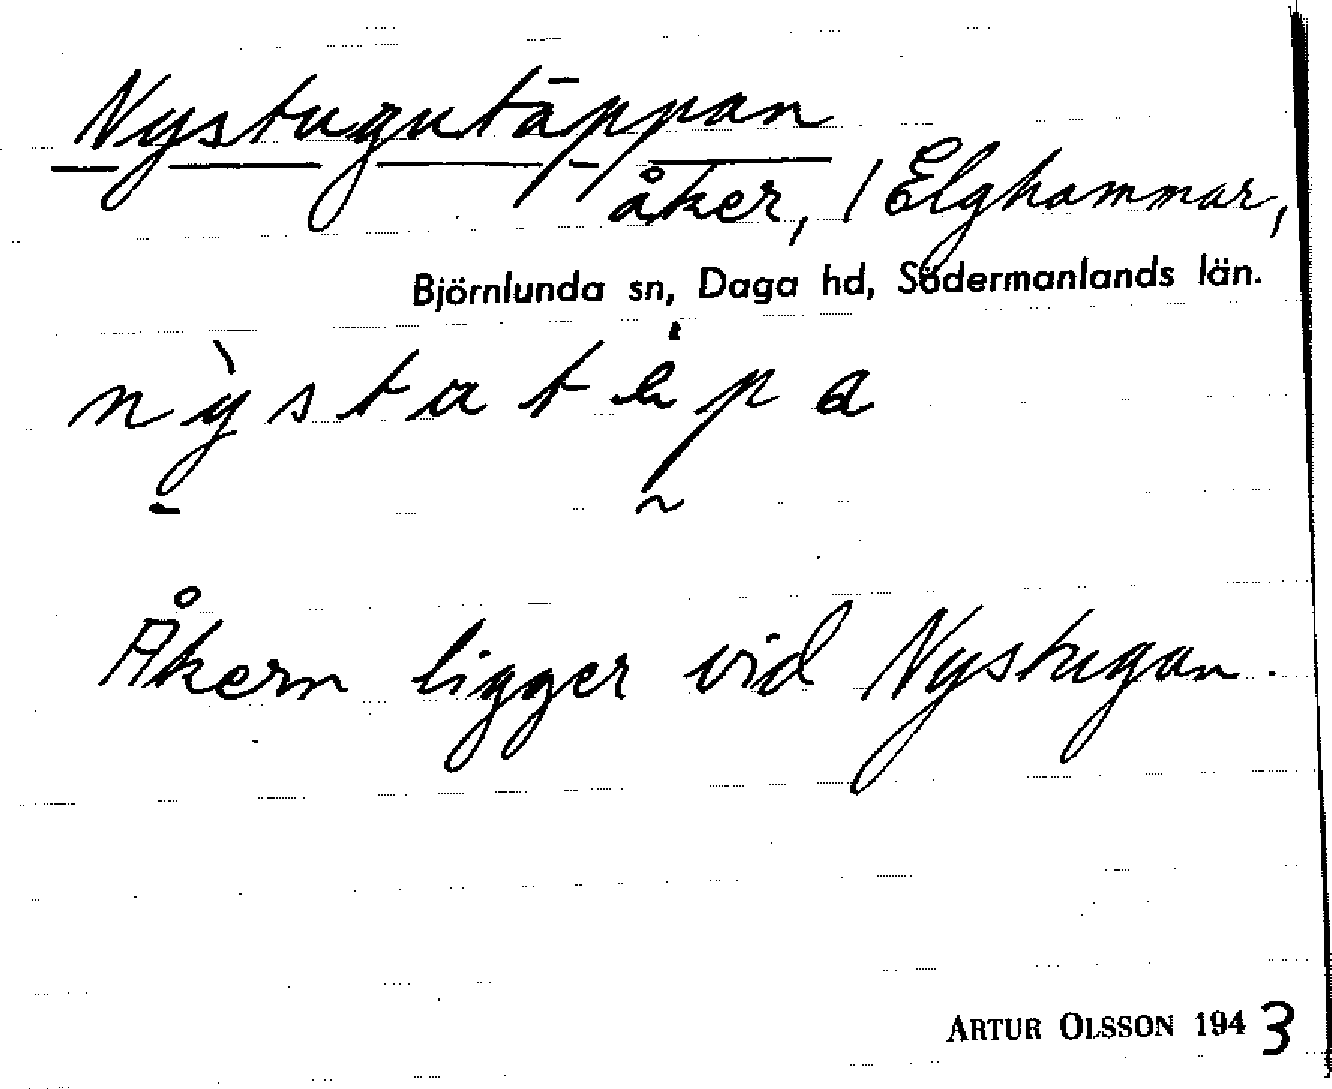 Nystugutäppan
åker, / Elghammar,
Björnlunda sn, Daga hd, Södermanlands län.
nỳstatȧpa
Åkern ligger vid Nystugan.
ARTUR OLSSON 1943